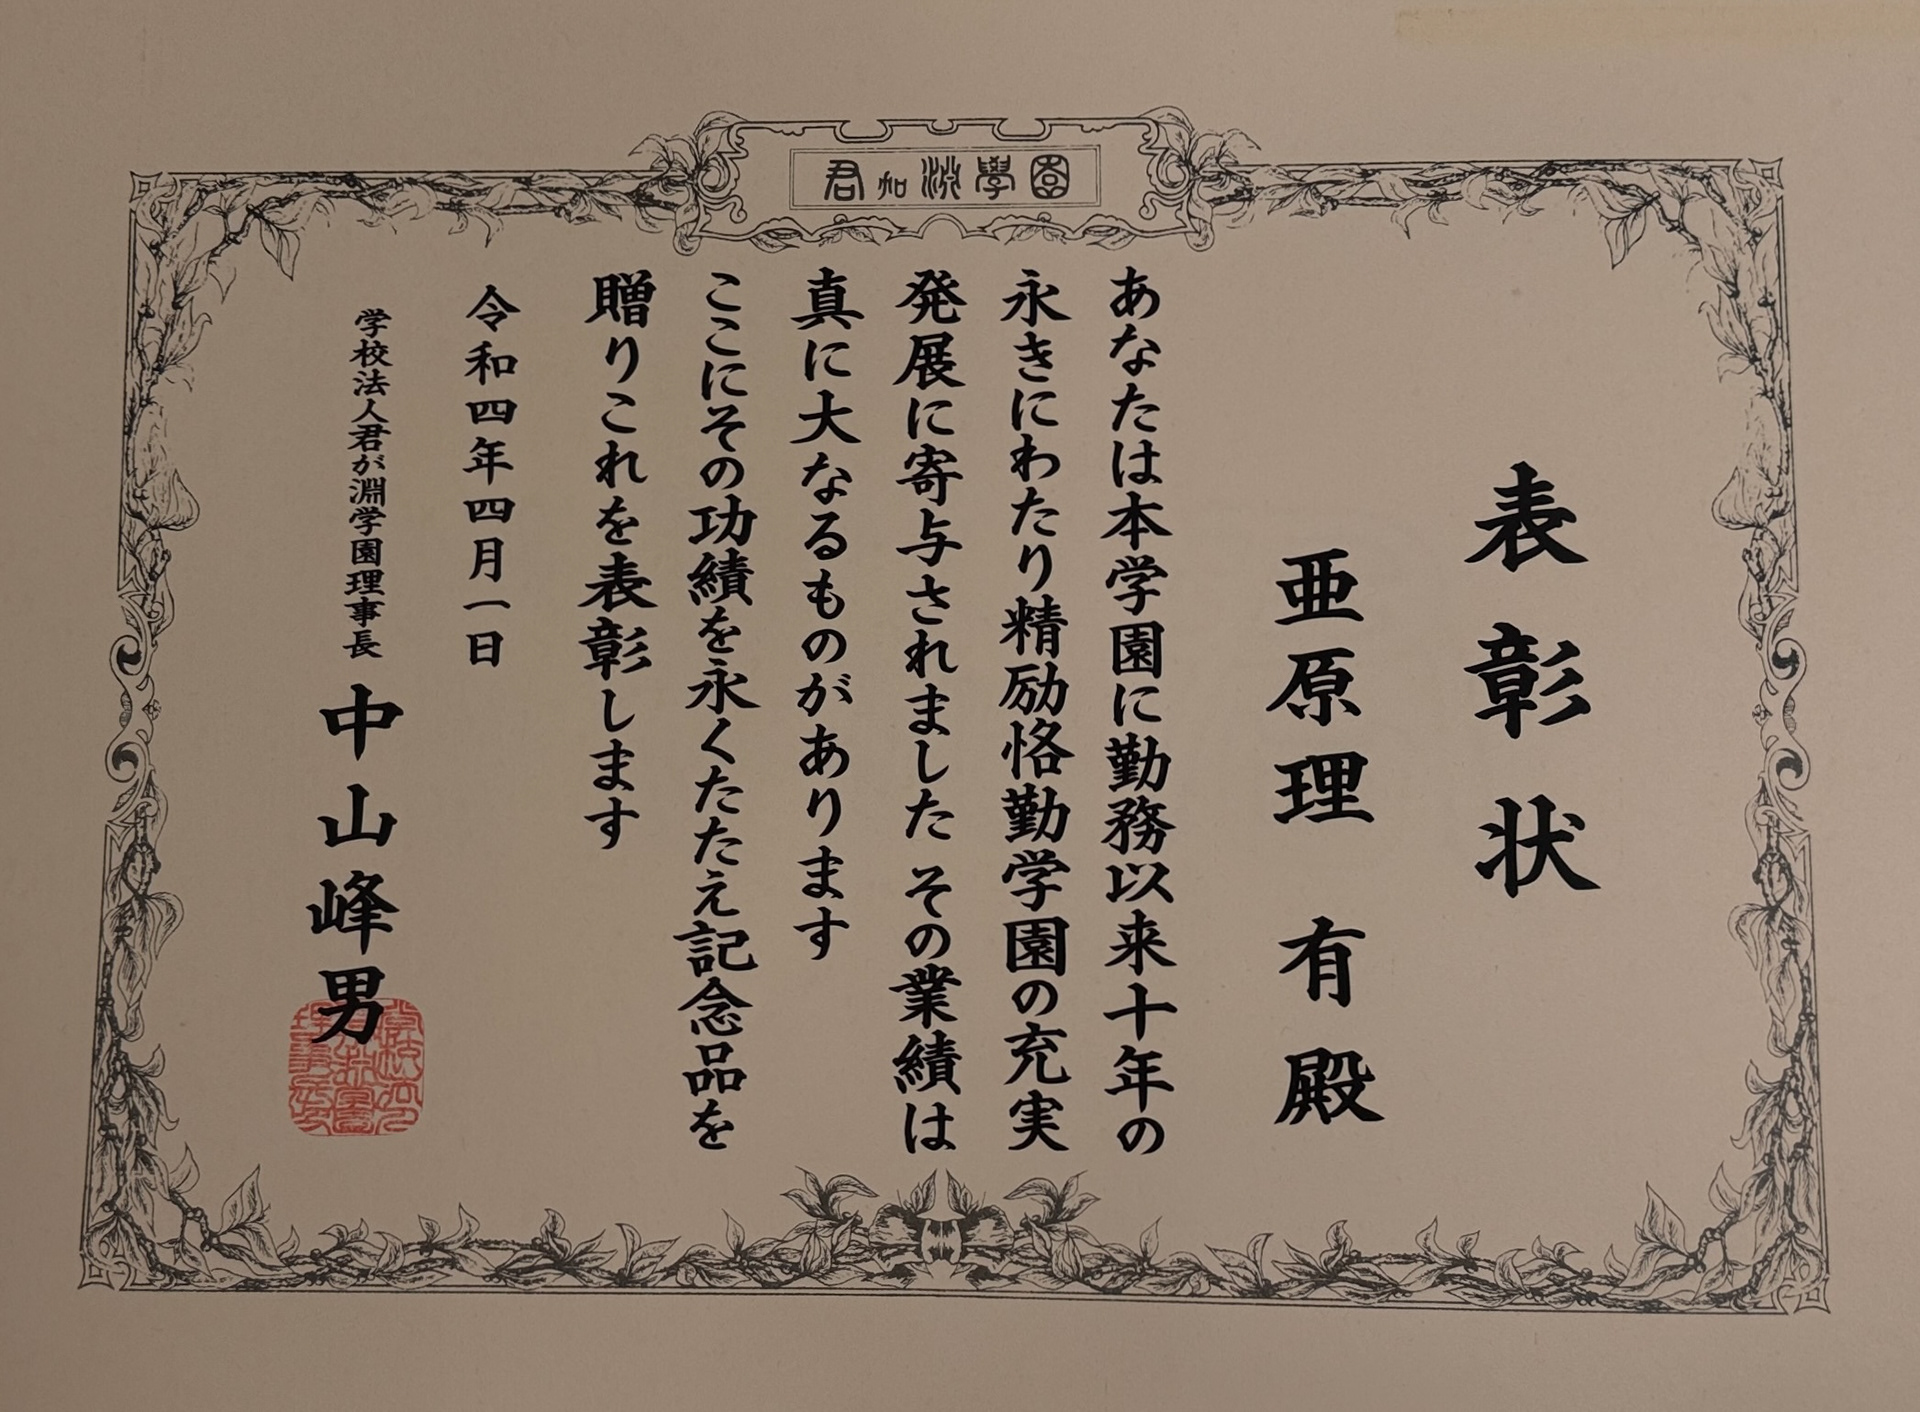 君加淵學園
表彰状
亜原理 有 殿
あなたは本学園に勤務以来十年の
永きにわたり精励恪勤学園の充実
発展に寄与されました その業績は
真に大なるものがあります
ここにその功績を永くたたえ記念品を
贈りこれを表彰します
令和四年四月一日
学校法人君が淵学園理事長 中山峰男